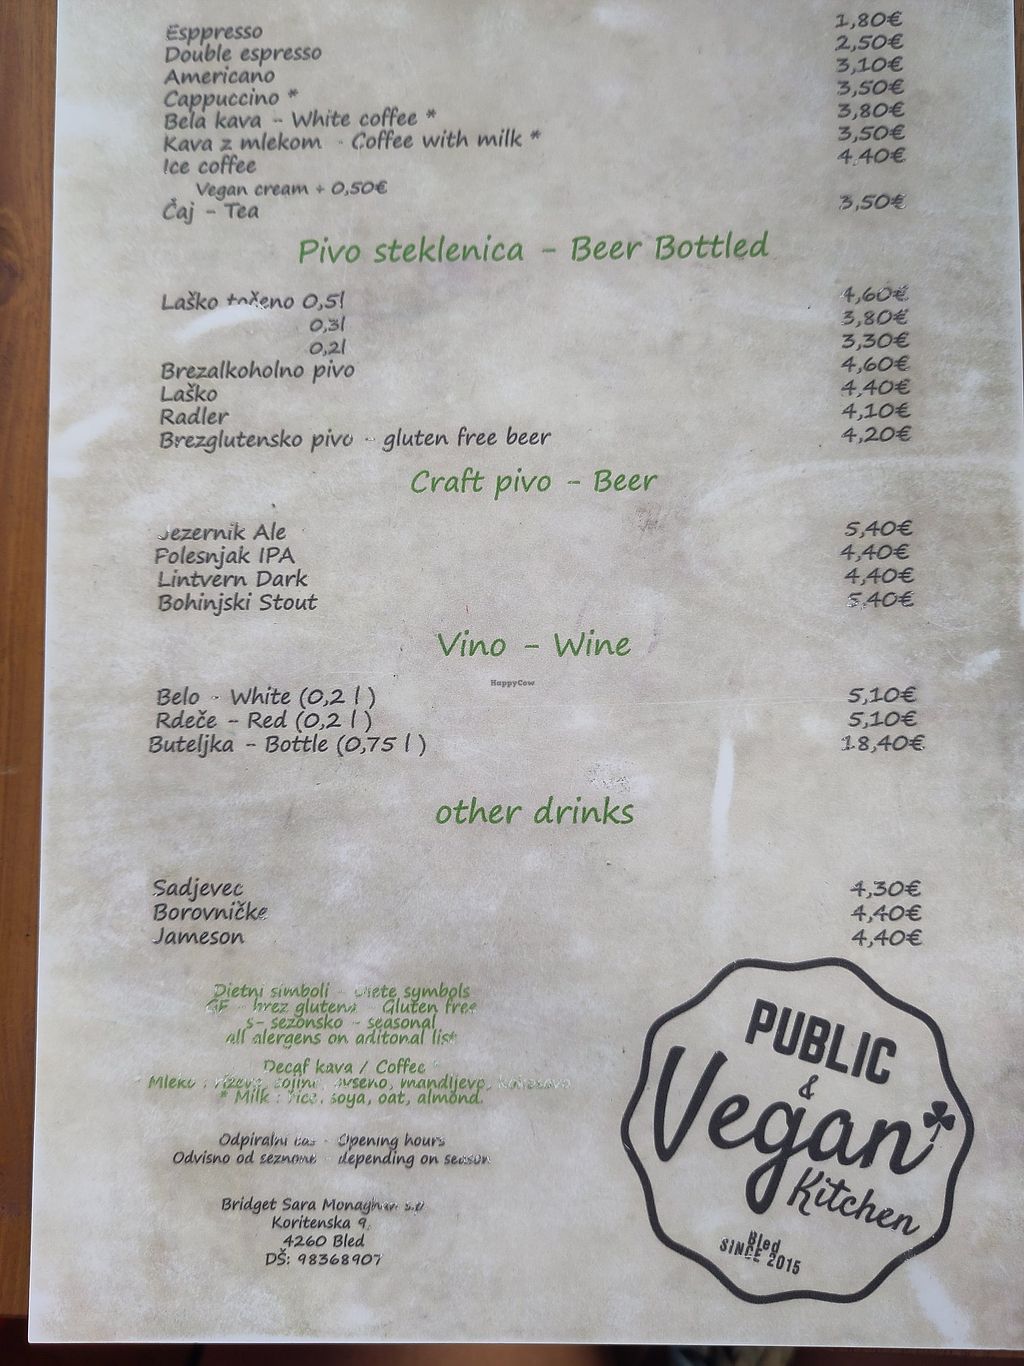 Esppresso 1,80€
Double espresso 2,50€
Americano 3,10€
Cappuccino * 3,50€
Bela kava - White coffee * 3,80€
Kava z mlekom - Coffee with milk * 3,50€
Ice coffee 4,40€
Vegan cream + 0,50€
Čaj - Tea 3,50€
Pivo steklenica - Beer Bottled
Laško točeno 0,5l 4,60€
0,3l 3,80€
0,2l 3,30€
Brezalkoholno pivo 4,60€
Laško 4,40€
Radler 4,10€
Brezglutensko pivo - gluten free beer 4,20€
Craft pivo - Beer
Jezernik Ale 5,40€
Folesnjak IPA 4,40€
Lintvern Dark 4,40€
Bohinjski Stout 5,40€
Vino - Wine
HappyCow
Belo - White (0,2 l ) 5,10€
Rdeče - Red (0,2 l ) 5,10€
Buteljka - Bottle (0,75 l ) 18,40€
other drinks
Sadjevec 4,30€
Borovničke 4,40€
Jameson 4,40€
Dietni simboli - Diete symbols
GF - brez glutena - Gluten free
s- sezonsko - seasonal
all alergens on aditonal list
Decaf kava / Coffee *
Mleko : riževo, sojino, ovseno, mandljevo,
* Milk : rice, soya, oat, almond.
Odpiralni čas - Opening hours
Odvisno od sezname - depending on season
Bridget Sara Monaghan s.p
Koritenska 9,
4260 Bled
DŠ: 98368907
PUBLIC
&
Vegan
Kitchen
Bled
SINCE 2015